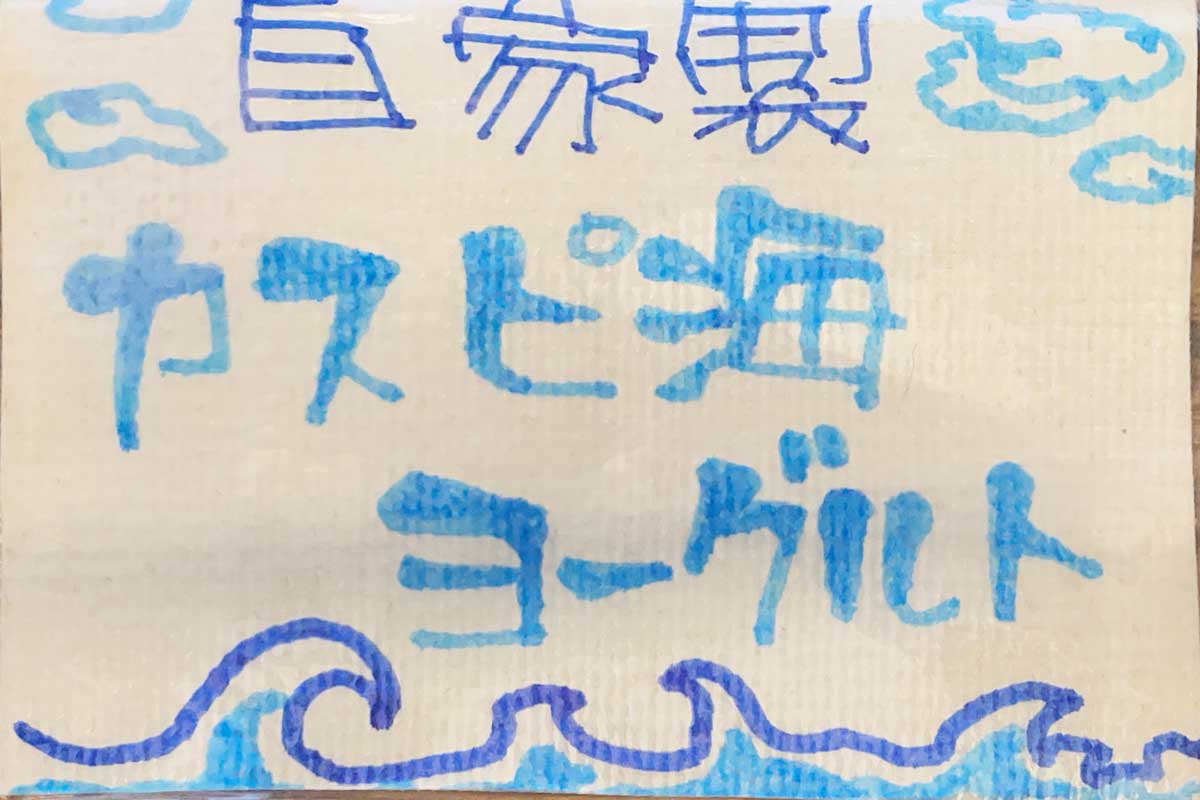 自家製
カスピ海
ヨーグルト